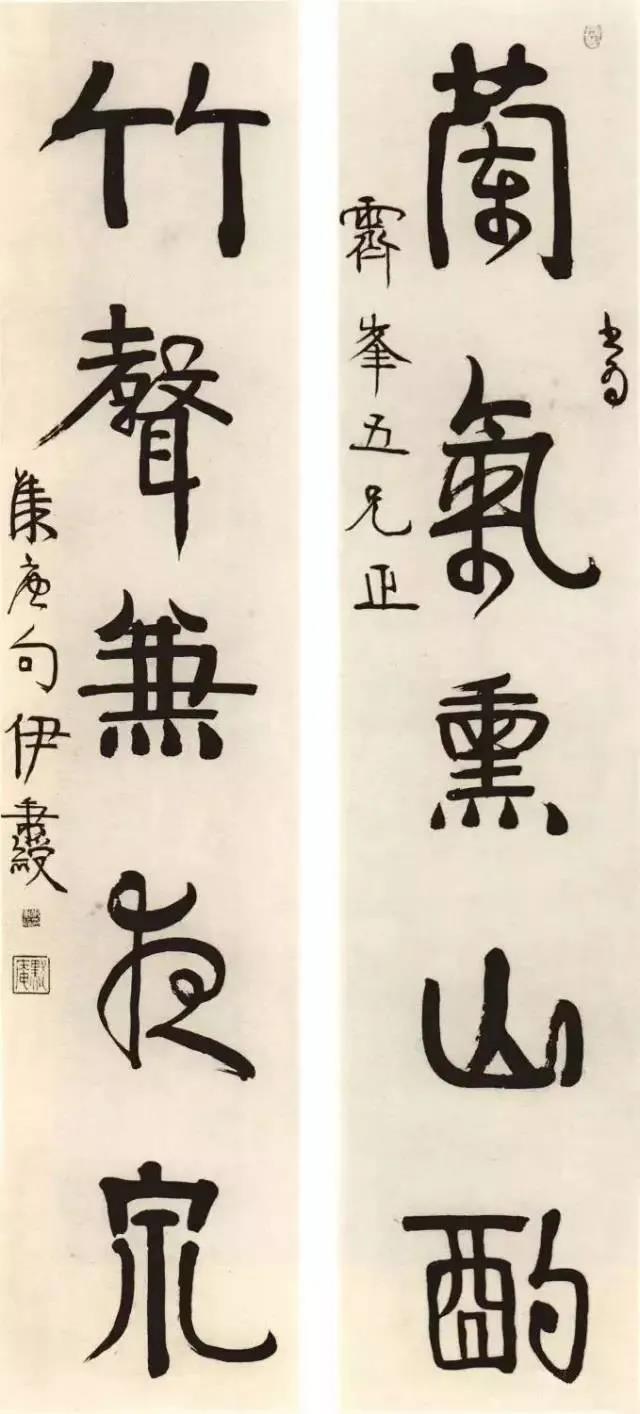 書為
蘭氣熏山酌
霽峯五兄正
竹聲兼夜泉
集唐句伊秉綬